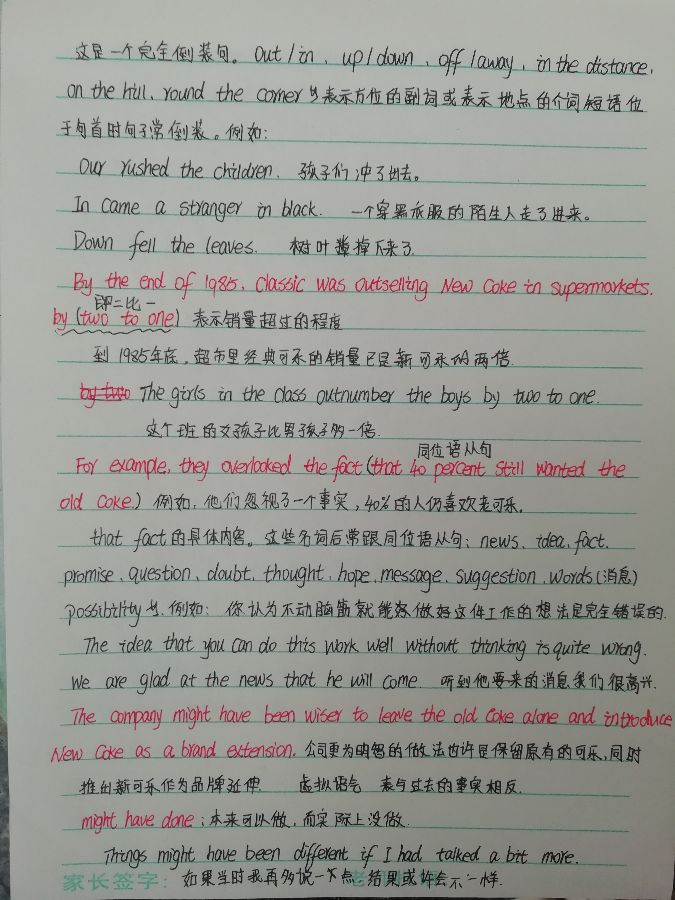 这是一个完全倒装句。out/in、up/down、off/away、in the distance,
on the hill、round the corner 等表示方位的副词或表示地点的介词短语位
于句首时句子常倒装。例如:
Our rushed the children. 孩子们冲了出去。
In came a stranger in black. 一个穿黑衣服的陌生人走了进来。
Down fell the leaves. 树叶掉下来了.
By the end of 1985, Classic was outselling New Coke in supermarkets.
即二比一
by (two to one) 表示销量超过的程度
到1985年底,超市里经典可乐的销量已是新可乐的两倍.
by two The girls in the class outnumber the boys by two to one.
这个班的女孩子比男孩子多一倍.
同位语从句
For example, they overlooked the fact (that 40 percent still wanted the
old Coke.) 例如,他们忽视了一个事实,40%的人仍喜欢老可乐。
that fact的具体内容。这些名词后常跟同位语从句:news、idea、fact、
promise、question、doubt、thought、hope、message、suggestion、words(消息)
possibility 等. 例如: 你认为不动脑筋就能够做好这件工作的想法是完全错误的.
The idea that you can do this work well without thinking is quite wrong.
We are glad at the news that he will come. 听到他要来的消息我们很高兴.
The company might have been wiser to leave the old Coke alone and introduce
New Coke as a brand extension. 公司更为明智的做法也许是保留原有的可乐,同时
推出新可乐作为品牌延伸. 虚拟语气 表与过去的事实相反.
might have done:本来可以做,而实际上没做.
Things might have been different if I had talked a bit more.
家长签字: 如果当时我再多说一下点 结果或许会不一样.